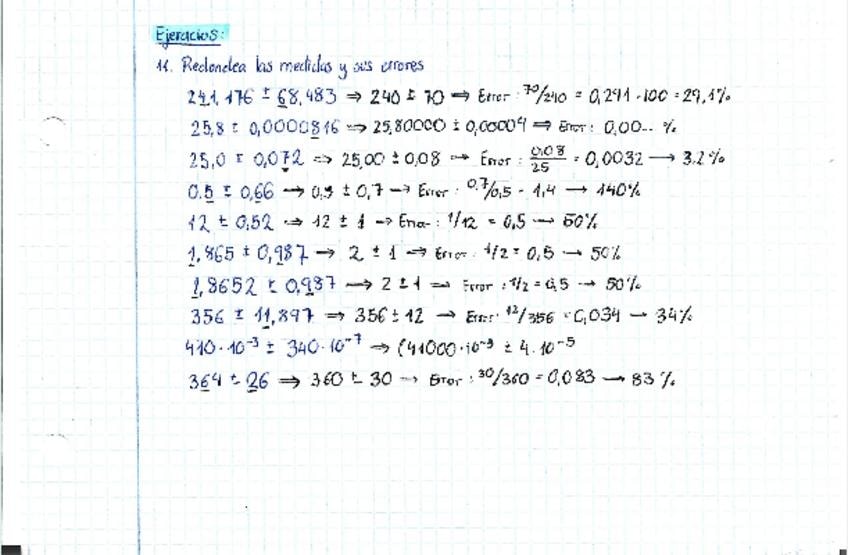 Ejercicios:
11. Redondea las medidas y sus errores
241,176 ± 68,483 ⇒ 240 ± 70 ⇒ Error : 70/240 = 0,291 · 100 = 29,1%
25,8 ± 0,0000816 ⇒ 25,80000 ± 0,00009 ⇒ Error : 0,00.. %
25,0 ± 0,072 ⇒ 25,00 ± 0,08 → Error : 0,08/25 = 0,0032 → 3.2%
0.5 ± 0,66 → 0,5 ± 0,7 → Error : 0.7/0,5 = 1,4 → 140%
12 ± 0,52 ⇒ 12 ± 1 → Error : 1/12 = 0,5 → 50%
1,865 ± 0,987 → 2 ± 1 → Error : 1/2 = 0,5 → 50%
1,8652 ± 0,987 → 2 ± 1 → Error : 1/2 = 0,5 → 50%
356 ± 11,897 ⇒ 356 ± 12 → Error : 12/356 = 0,034 → 34%
410 · 10⁻³ ± 340 · 10⁻⁷ ⇒ (41000 · 10⁻⁵ ± 4 · 10⁻⁵
364 ± 26 ⇒ 360 ± 30 → Error : 30/360 = 0,083 → 83 %